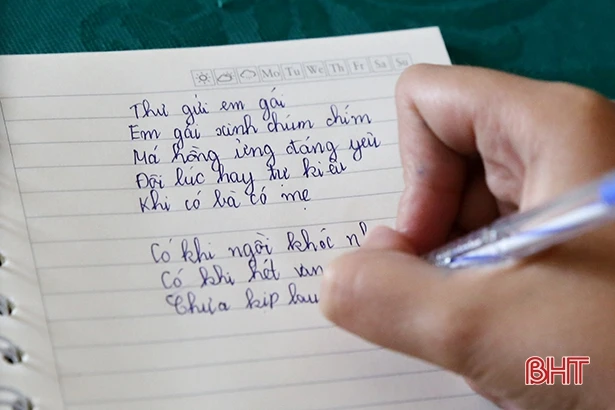 Mo Tu We Th Fr Sa Su
Thư gửi em gái
Em gái xinh chúm chím
Má hồng ửng đáng yêu
Đôi lúc hay tự kiêu
Khi có bà có mẹ
Có khi ngồi khóc
Có khi hót van
Chưa kịp lau
BHT